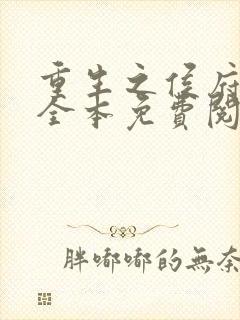 重生之侯府
全本免費閱
胖嘟嘟的無奈